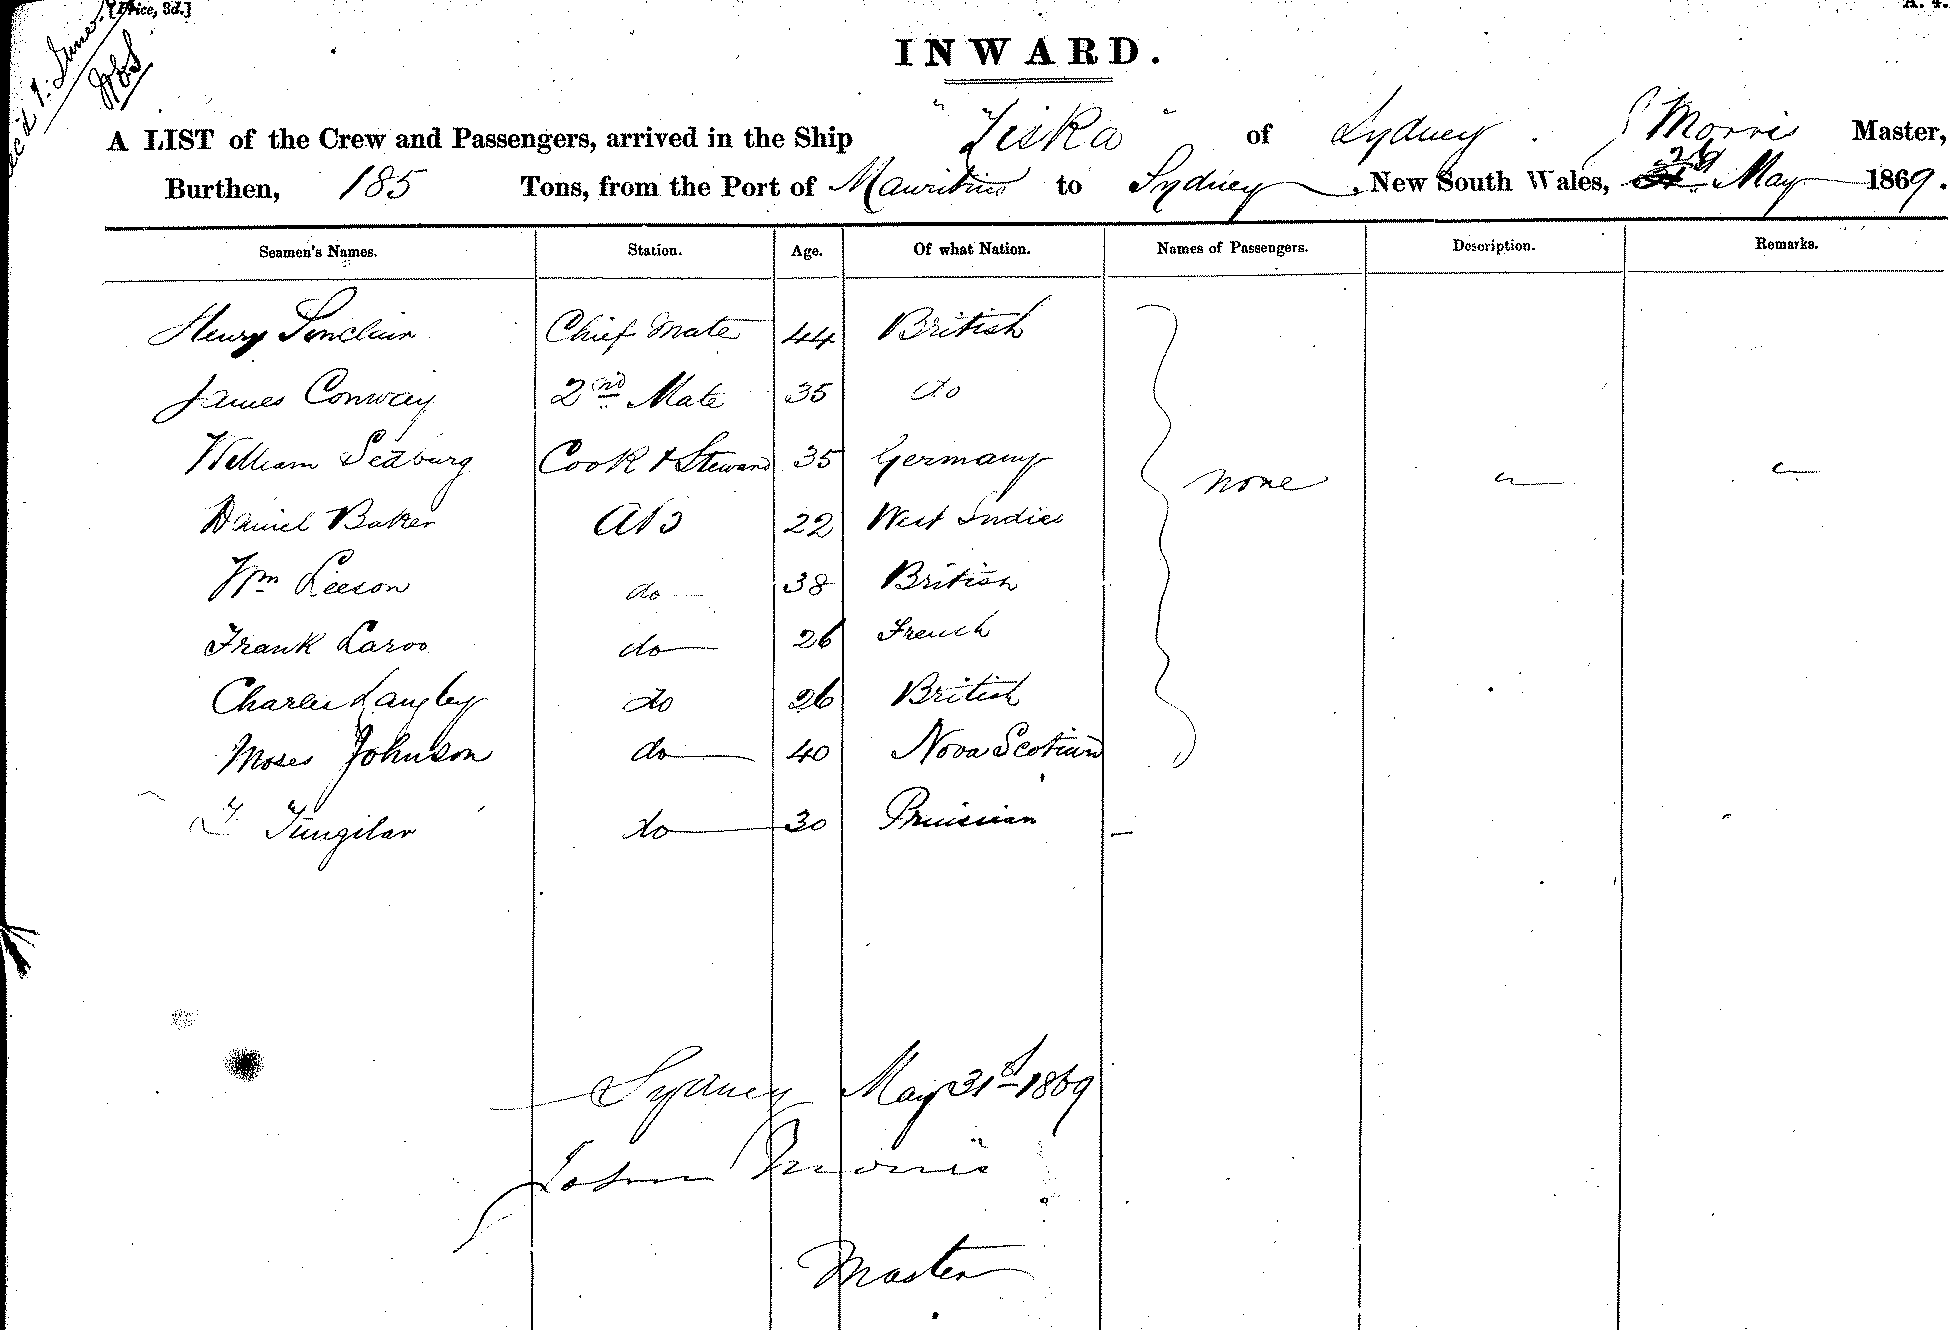 [Price, 3d.]
A. 4.
INWARD.
A LIST of the Crew and Passengers, arrived in the Ship "Ziska" of Sydney. J Morris Master,
Burthen, 185 Tons, from the Port of Mauritius to Sydney, New South Wales, May 1869.
Seamen's Names. Station. Age. Of what Nation. Names of Passengers. Description. Remarks.
Henry Sinclair Chief Mate 44 British
James Conway 2nd Mate 35 do
William Sedburg Cook & Steward 35 Germany none
Daniel Baker AB 22 West Indies
Wm Leeson do 38 British
Frank Laroo do 26 French
Charles Langley do 26 British
Moses Johnson do 40 Nova Scotian
do 30 Prussian
Sydney May 31st 1869
John Morris
Master